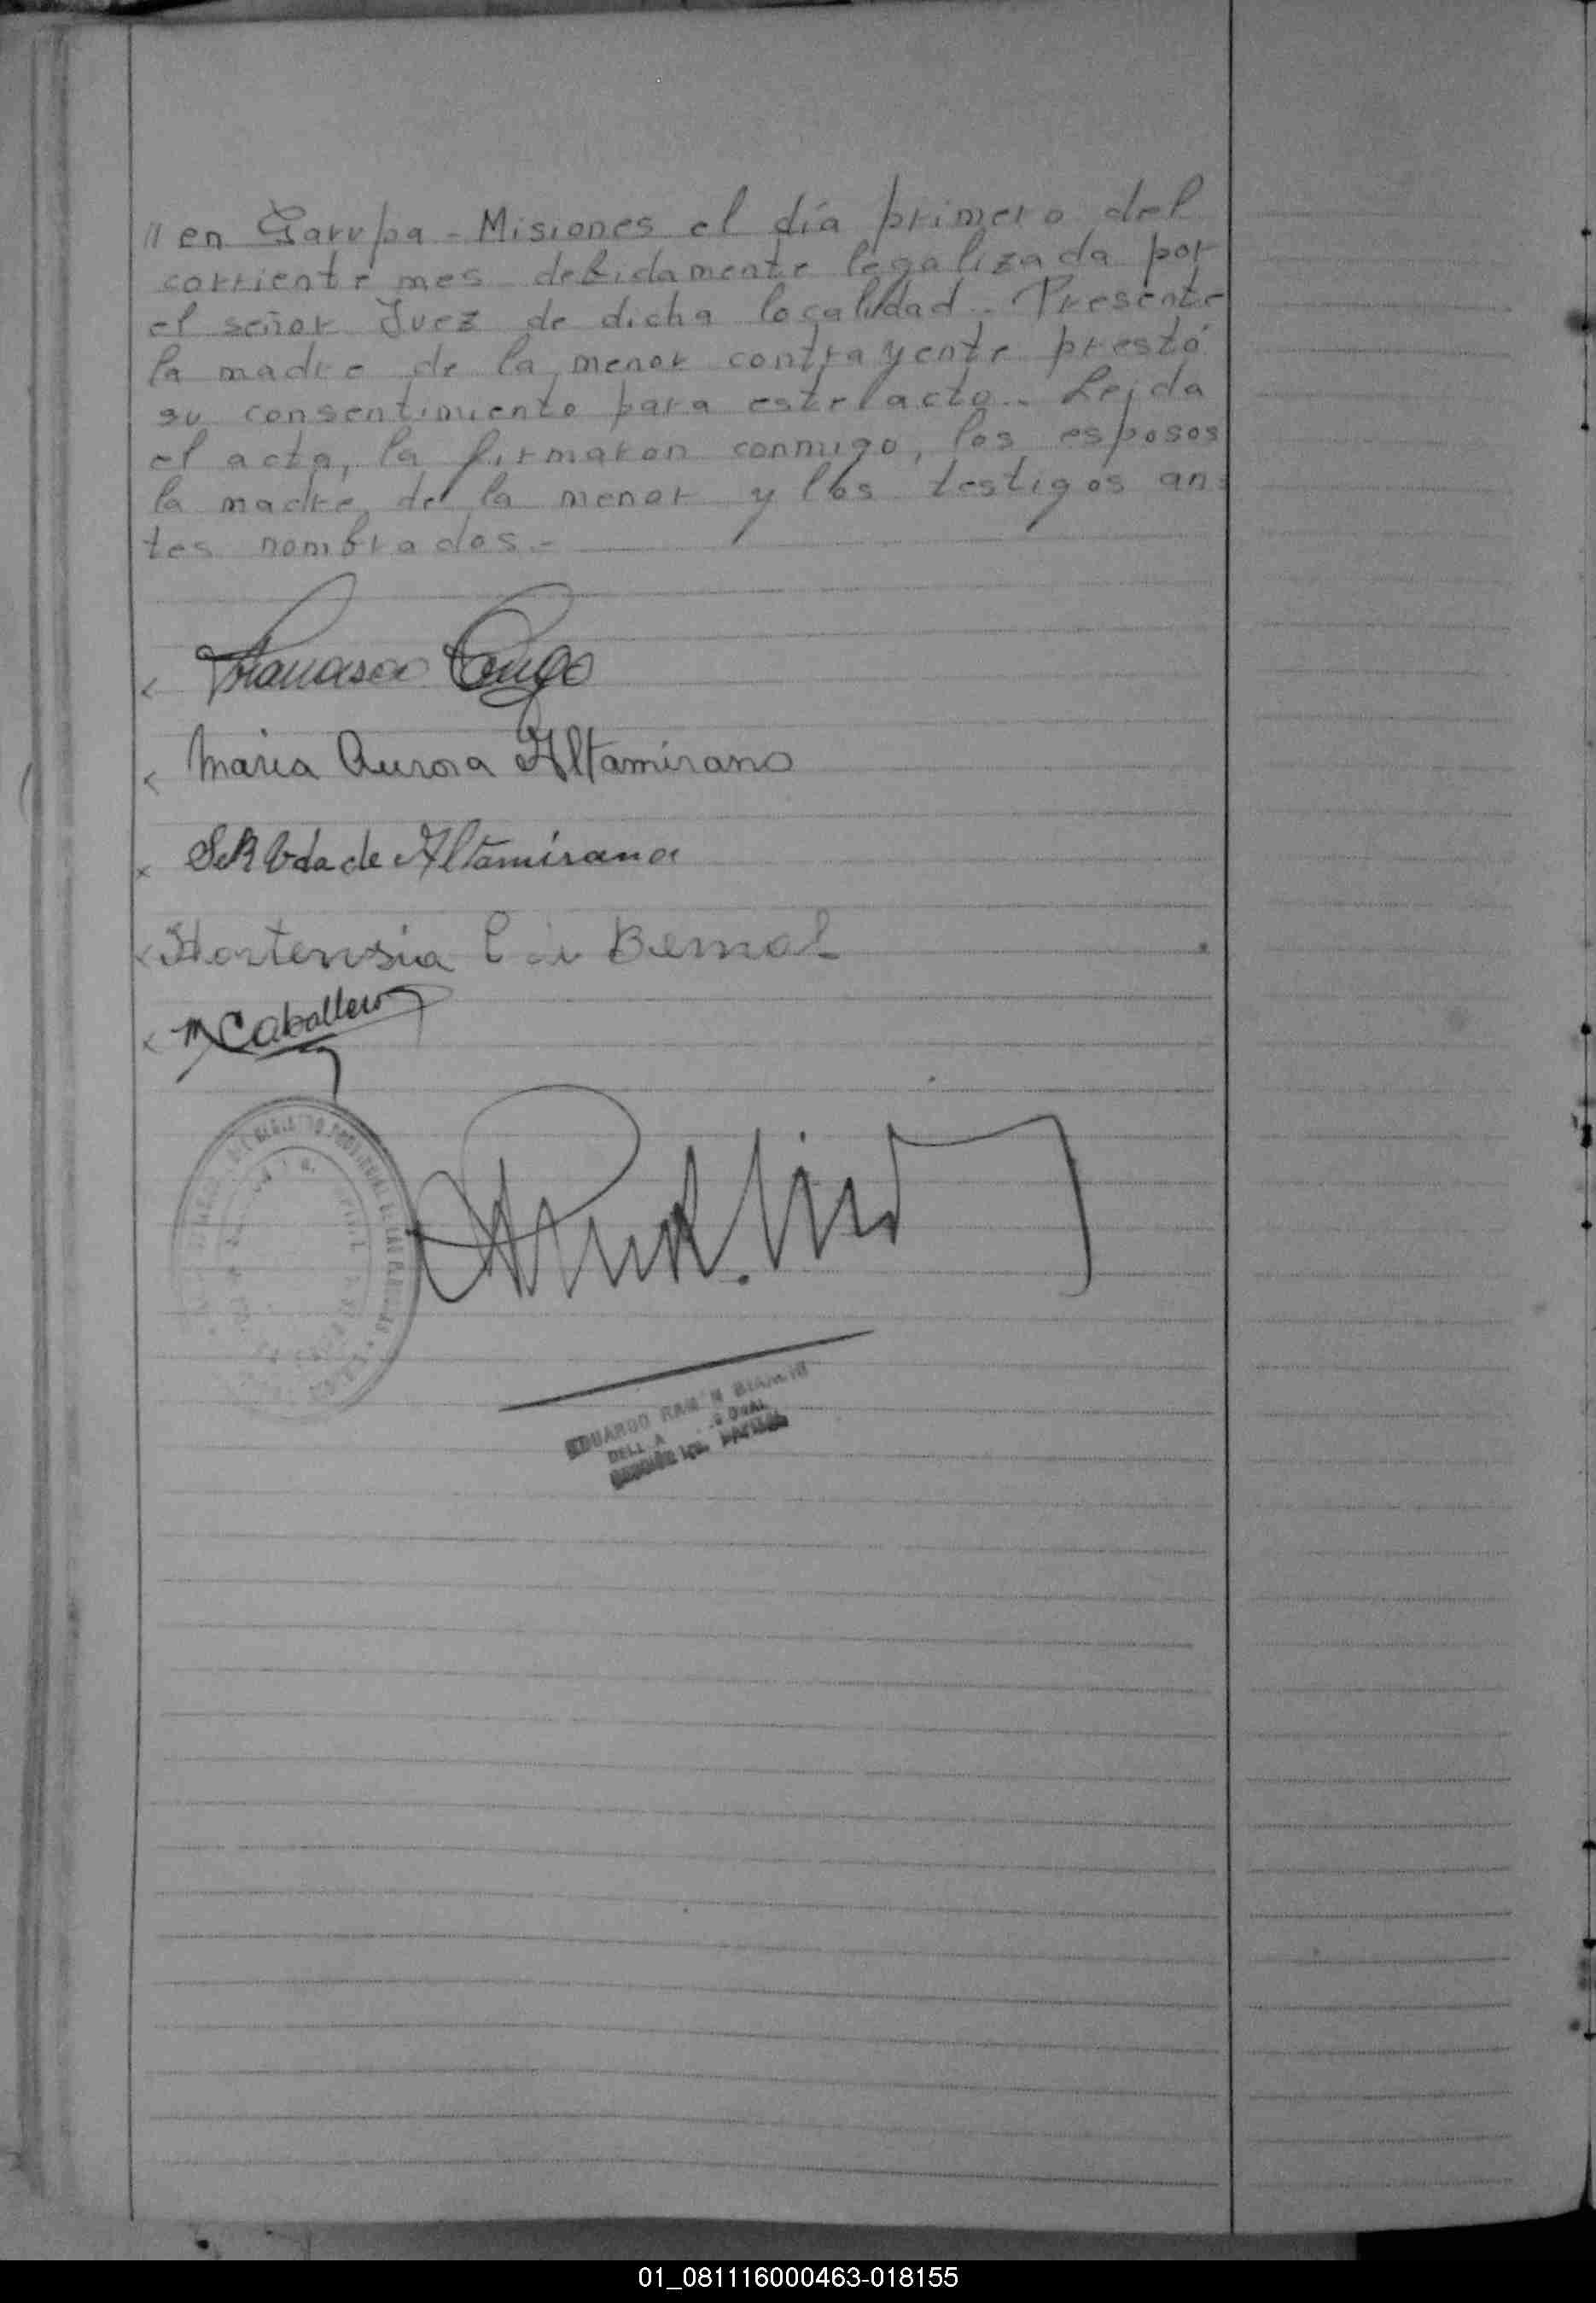 // en Garupa - Misiones el día primero del
corriente mes debidamente legalizada por
el señor Juez de dicha localidad. Presente
la madre de la menor contrayente prestó
su consentimiento para este acto.. Leida
el acta, la firmaron conmigo, los esposos
la madre de la menor y los testigos an=
tes nombrados.-
x Francisco
x Maria Aurora Altamirano
x Vda de Altamirano
x Hortensia Bernal
x M Caballero
REGISTRO PROVINCIAL DE LAS PERSONAS
EDUARDO RAMÓN
01_081116000463-018155